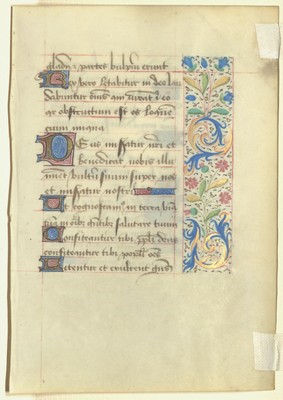 gladii partes vulpiu erunt
Rex vero letabitur in deo lau
dabuntur omīs qui iurāt ī eo
qr obstructum est os loquēn
cium iniqua
Deus misereatur nr̄i et
benedicat nobis illu
minet vultum suum super nos
et misereatur nostri
Ut cognoscam⁹ in terra viā
tuā in oīb⁹ gētib⁹ salutare tuum
Confiteantur tibi ppl̄i deus
confiteantur tibi popl̄i oēs
Letentur et exultent gētes